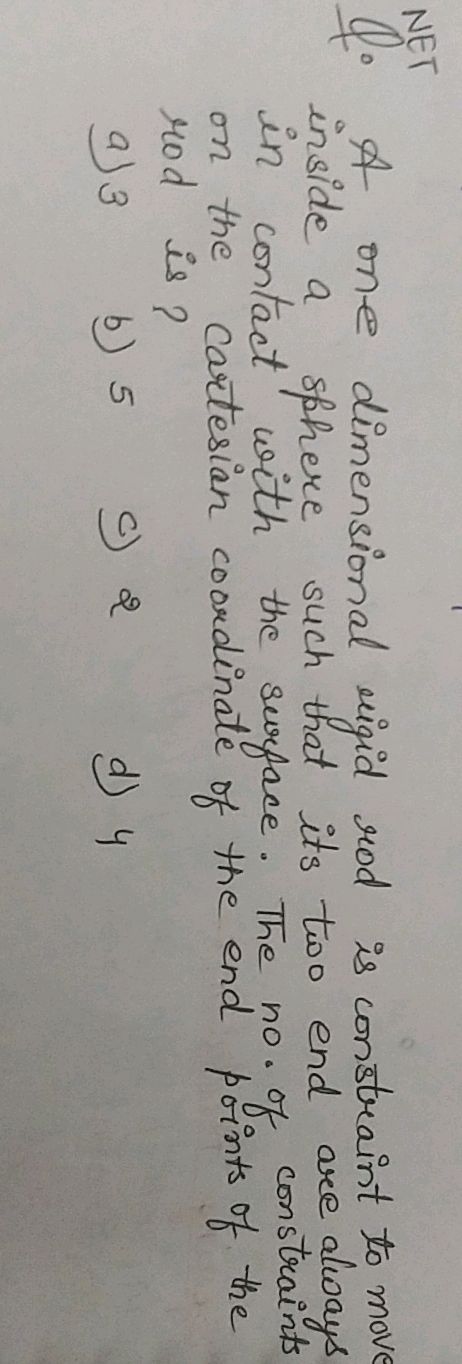 NET
Q. A one dimensional rigid rod is constraint to move
inside a sphere such that its two end are always
in contact with the surface. The no. of constraints
on the Cartesian coordinate of the end points of the
rod is?
a) 3 b) 5 c) 2 d) 4